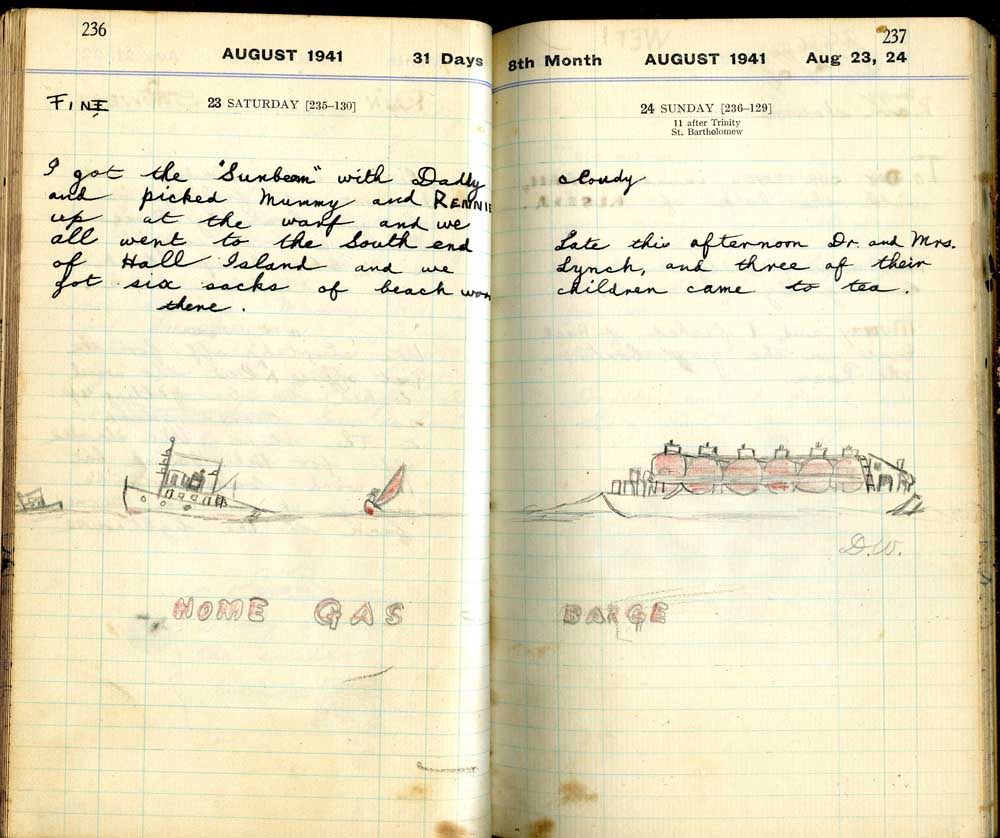 236
AUGUST 1941 31 Days
FINE
23 SATURDAY [235–130]
I got the "Sunbeam" with Daddy
and picked Mummy and RENNIE
up at the warf and we
all went to the South end
of Hall Island and we
got six sacks of beach
there.
HOME GAS
237
8th Month AUGUST 1941 Aug 23, 24
24 SUNDAY [236–129]
11 after Trinity
St. Bartholomew
cloudy
Late this afternoon Dr. and Mrs.
Lynch, and three of their
children came to tea.
D.W.
BARGE